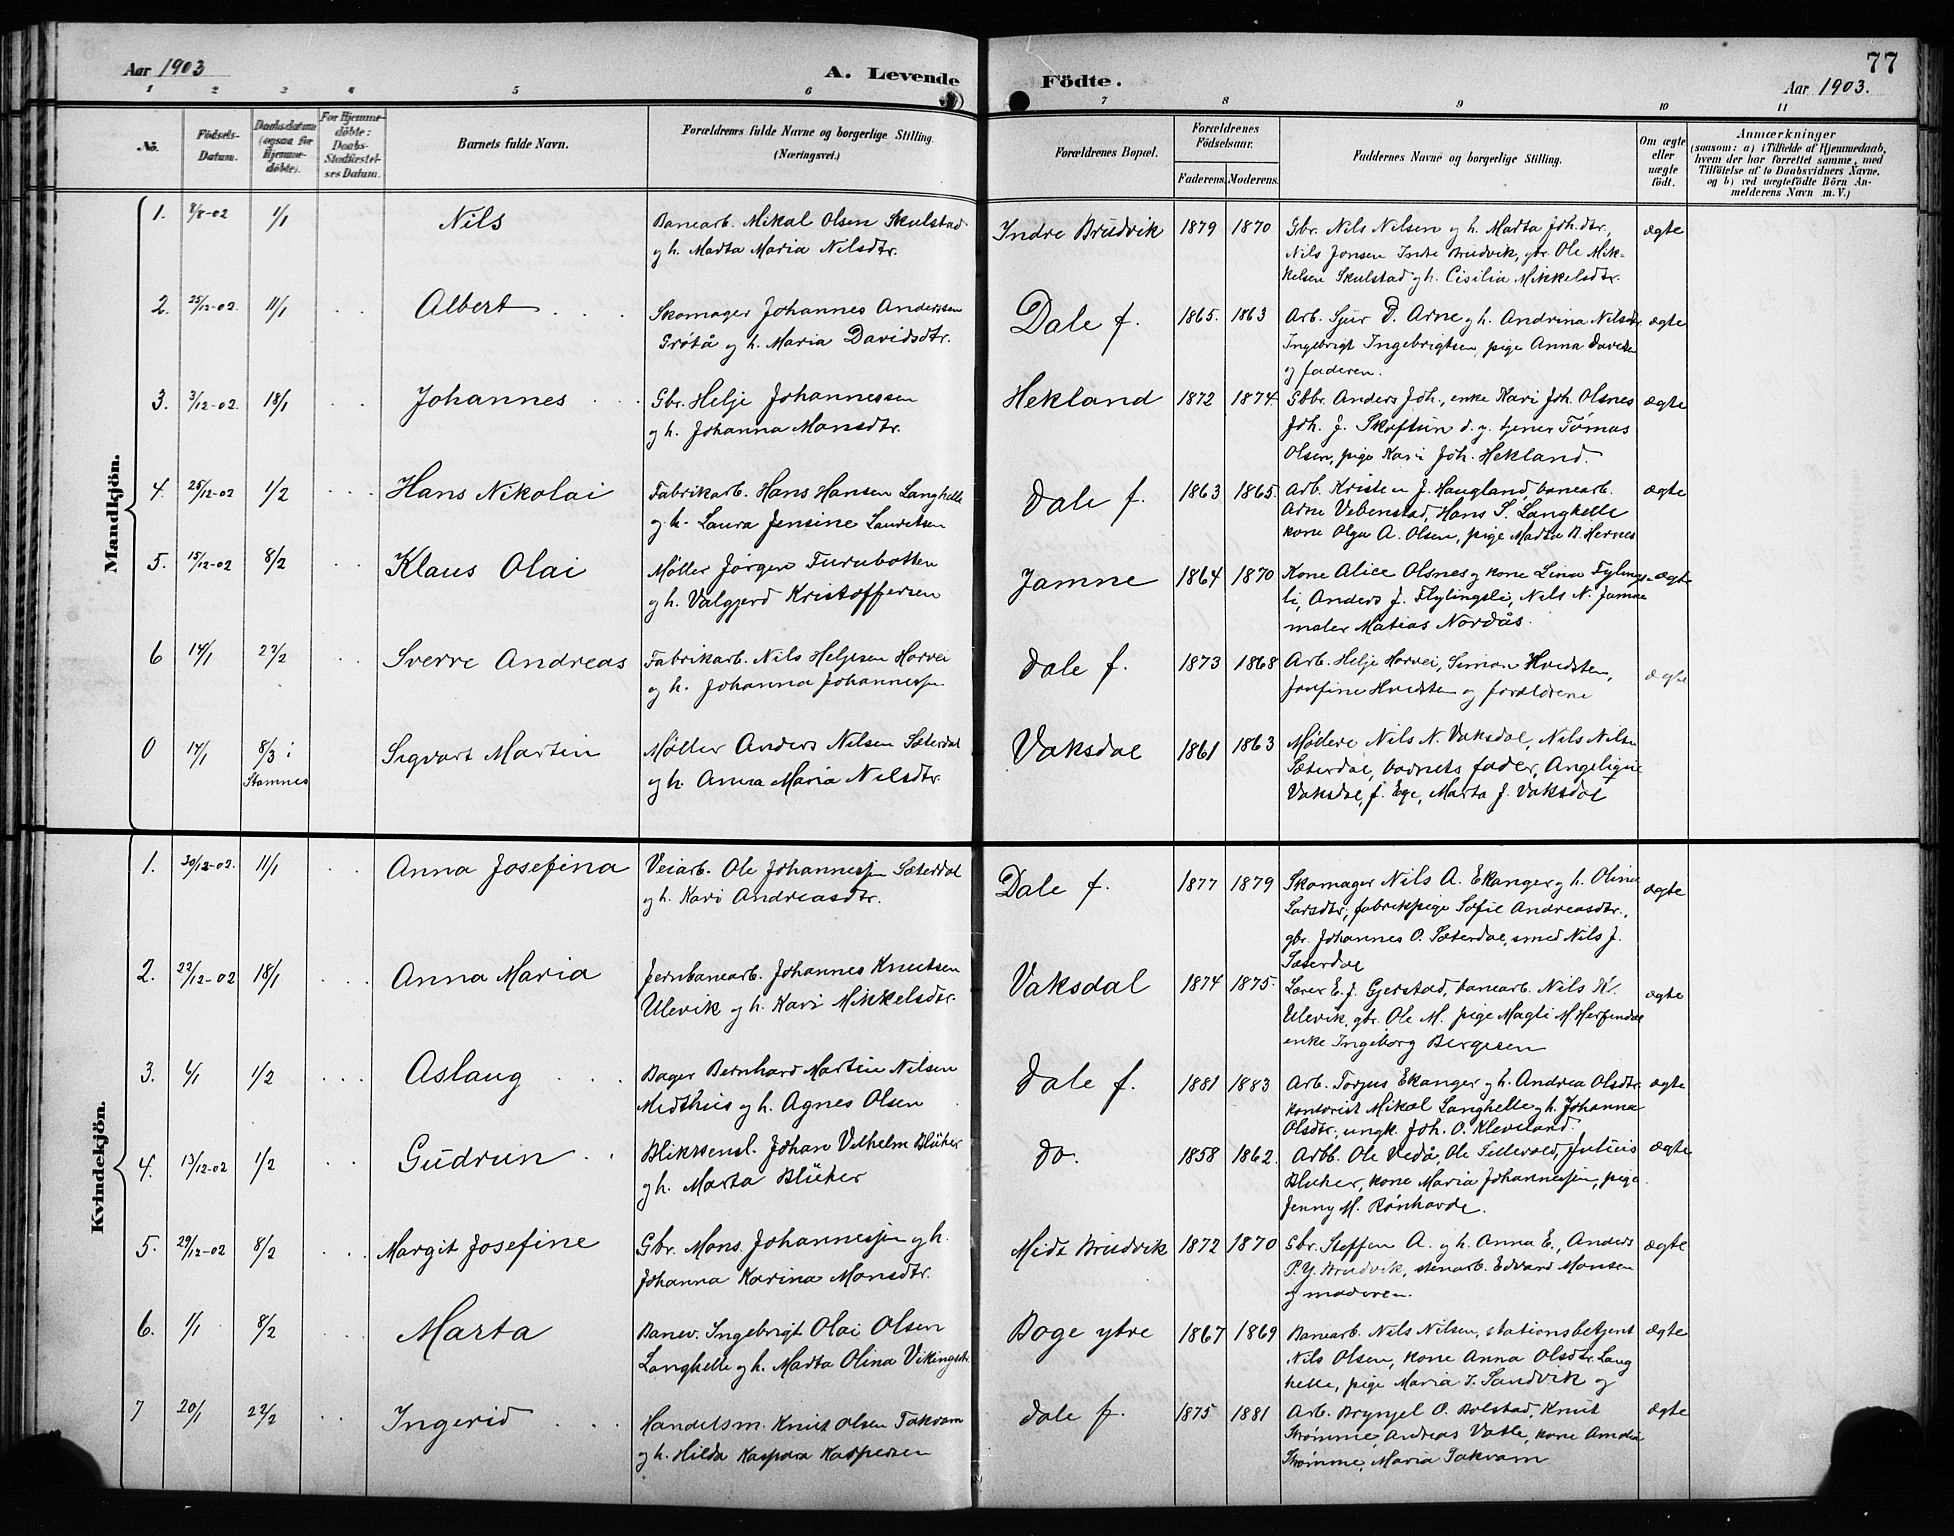 Aar 1903
A. Levende Födte.
77
Aar 1903.
1 2 3 4 5 6 7 8 9 10 11
No.
Födsels-Datum.
Daabsdatum (ogsaa för Hjemmedöbte).
For Hjemmedöbte: Daabs-Stadfæstelses Datum.
Barnets fulde Navn.
Forældrenes fulde Navne og borgerlige Stilling. (Næringsvei.)
Forældrenes Bopæl.
Forældrenes Födselsaar.
Faderens. Moderens.
Faddernes Navne og borgerlige Stilling.
Om ægte eller uægte födt.
Anmærkninger
(saasom: a) i Tilfælde af Hjemmedaab, hvem der har forrettet samme, med Tilföielse af to Daabsvidners Navne, og b) ved uægtefödte Börn Anmelderens Navn m. V.)
Mandkjön.
1. 8/8-02 1/1 Nils
Banearb. Mikal Olsen Skulstad
og h. Marta Maria Nilsdtr.
Indre Brudvik 1879 1870
Gbr. Nils Nilsen og h. Marta Joh.dtr.,
Nils Jonsen Indre Brudvik, gbr. Ole Mik-
kelsen Skulstad og h. Cisilia Mikkelsdtr.
ægte
2. 25/12-02. 11/1 Albert
Skomager Johannes Anderssen
og h. Maria Davidsdtr.
Dale f. 1865. 1863
Arb. Sjur D. Arne og h. Andrina Nilsdtr
Ingebrigt Ingebrigtsen, pige Anna
og faderen.
ægte
3. 3/12-02. 18/1 Johannes
Gbr. Helje Johannessen
og h. Johanna Monsdtr.
Hekland 1872 1874
Gbr. Anders Joh., enke Kari Joh. Olsnes
Joh. J. Skoftun d. y. tjener Tomas
Olsen, pige Kari Joh. Hekland.
ægte
4. 25/12-02 1/2 Hans Nikolai
Fabrikarb. Hans Hansen Langhelle
og h. Laura Jensine Lauritsen
Dale f. 1863 1865.
Arb. Kristen J. Haugland, banearb.
Arne Vebenstad, Hans S. Langhelle
kone Olga A. Olsen, pige Marta B. Hernes
ægte
5. 15/12-02 8/2 Klaus Olai
Møller Jørgen Furubotten
og h. Valgjerd Kristoffersen
Jamne 1864 1870
Kone Alice Olsnes og kone Lina Fylings-
li, Anders J. Flylingsli, Nils N. Jamne
maler Matias Nordås.
ægte
6 14/1 22/2 Sverre Andreas
Fabrikarb. Nils Heljesen Horvei
og h. Johanna Johannessen
Dale f. 1873 1868
Arb. Helje Horvei, Simon Hvidsten,
Josefine Hvidsten og forældrene
ægte
0 14/1 8/3 i Stamnes Sigvart Martin
Møller Anders Nilsen Sæterdal
og h. Anna Maria Nilsdtr.
Vaksdal 1861 1863
Møllere Nils N. Vaksdal, Nils Nilsen
Sæterdal, barnets fader, Angeligue
Vaksdal, f. Ege, Marta J. Vaksdal
Kvindekjön.
1. 30/12-02. 11/1 Anna Josefina
Veiarb. Ole Johannessen Sæterdal
og h. Kari Andreasdtr.
Dale f. 1877 1879
Skomager Nils A. Ekanger og h. Olina
Larsdtr, fabrikpige Sofie Andreasdtr.,
gbr. Johannes O. Sæterdal, smed Nils J.
Sæterdal
ægte
2. 22/12-02 18/1 Anna Maria
Jernbanearb. Johannes Knutsen
Ulevik og h. Kari Mikkelsdtr.
Vaksdal 1874 1875.
Lærer E. J. Gjerstad, banearb. Nils K.
Ulevik, gbr. Ole M. pige Magli M. Herfindal
enke Ingeborg Bergesen
ægte
3. 6/1 1/2 Aslaug
Bager Bernhard Martin Nilsen
Midthus og h. Agnes Olsen
Dale f. 1881 1883
Arb. Torjus Ekanger og h. Andrea Olsdtr.
kontorist Mikal Langhelle og h. Johanna
Olsdtr., ungk. Joh. O. Kleveland.
ægte
4. 13/12-02 1/2 Gudrun
Blikkensl. Johan Vilhelm Blüher
og h. Marta Blüher
do. 1858 1862.
Arbb. Ole Vedå, Ole Tillevold, Julius
Bluher, kone Maria Johannessen, pige
Jenny M. Rønhovde.
ægte
5. 29/12-02 8/2 Margit Josefine
Gbr. Mons Johannessen og h.
Johanna Karina Monsdtr.
Midt Brudvik 1872 1870
Gbr. Steffen A. og h. Anna E., Anders
P. Y. Brudvik, stenarb. Edvard Monsen
og moderen.
ægte
6. 1/1 8/2 Marta
Banev. Ingebrigt Olai Olsen
Langhelle og h. Marta Olina Vikingsdtr.
Boge ytre 1867 1869
Banearb. Nils Nilsen, stationsbetjent
Nils Olsen, kone Anna Olsdtr. Lang
helle, pige Maria I. Sandvik og
ægte
7 20/1 22/2 Ingerid
Handelsm. Knut Olsen Takvam
og h. Hilda Kaspara Kaspersen
Dale f. 1875 1881
Arb. Brynjel O. Bolstad, Knut
Strømme, Andreas Vatle, kone Amalia
Strømme, Maria Takvam
ægte